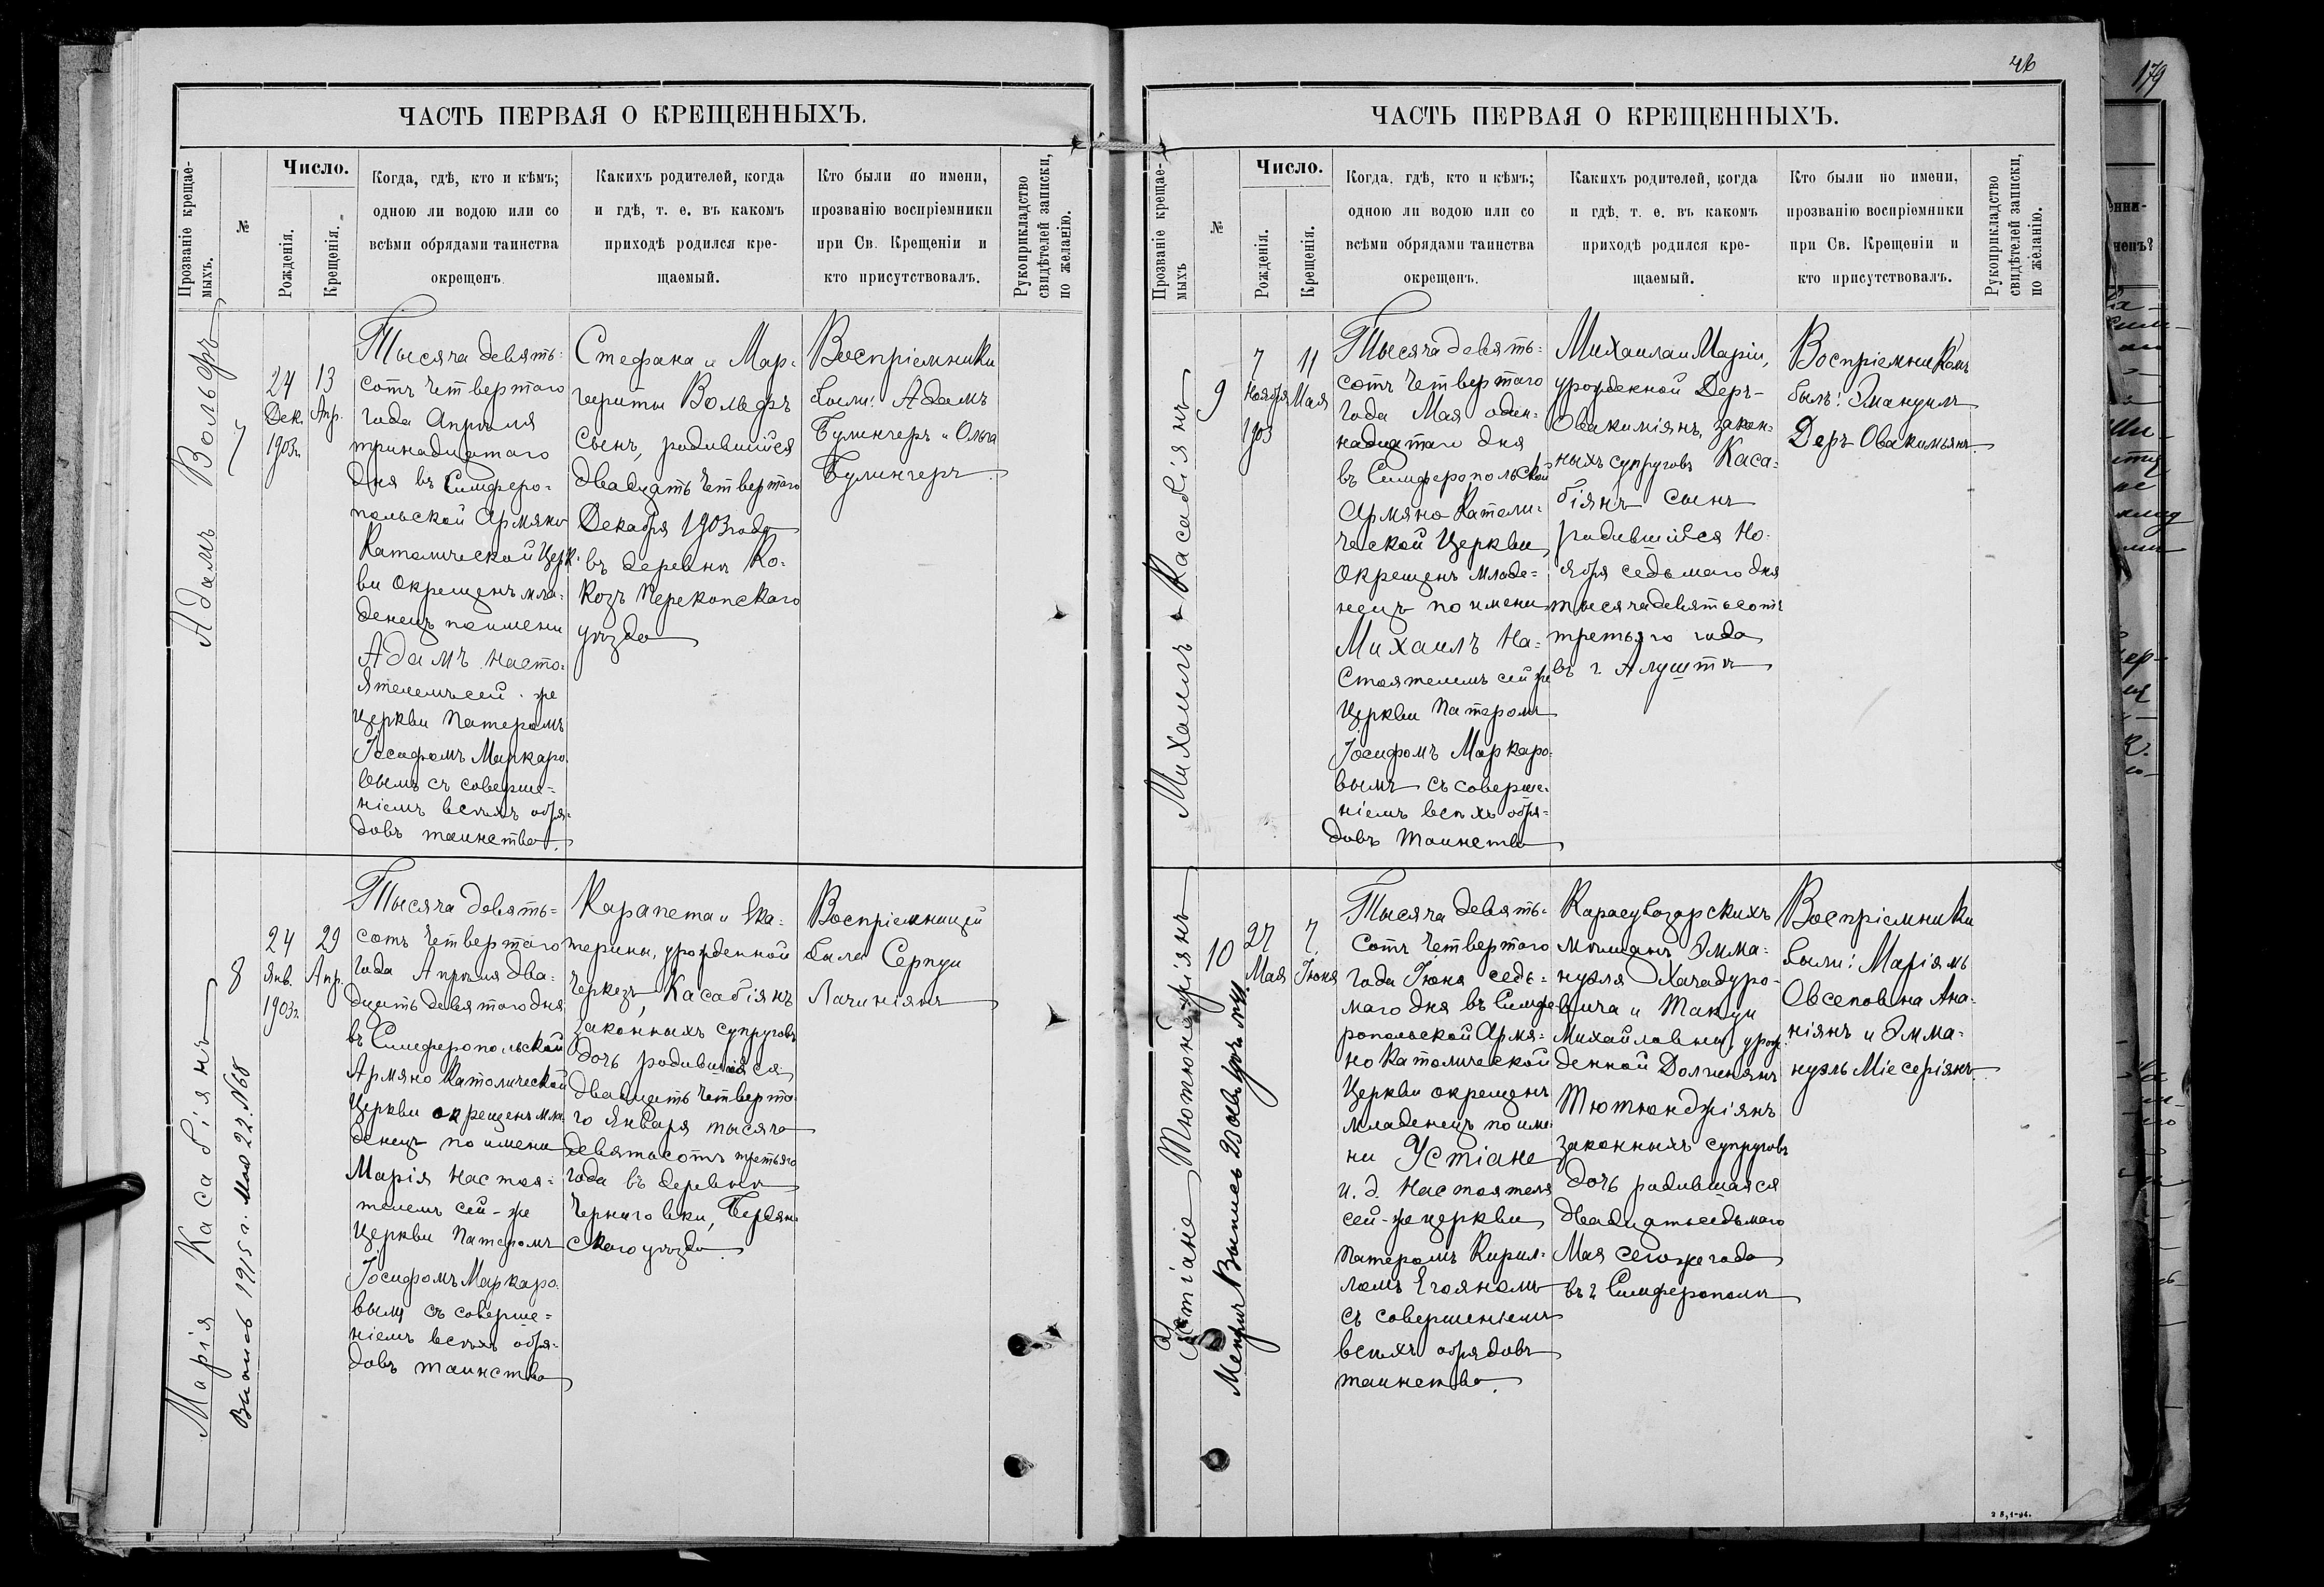 ЧАСТЬ ПЕРВАЯ О КРЕЩЕННЫХЪ.
Прозваніе крещае-
мыхъ.
№
Число.
Рожденія.
Крещенія.
Когда, гдѣ, кто и кѣмъ;
одною ли водою или со
всѣми обрядами таинства
окрещенъ
Какихъ родителей, когда
и гдѣ, т. е. въ какомъ
приходѣ родился кре-
щаемый.
Кто были по имени,
прозванію воспріемники
при Св. Крещеніи и
кто присутствовалъ.
Рукоприкладство
свидѣтелей записки,
по желанію.
Адамъ Вольфъ
7
24
Дек.
1903г.
13
Апр.
Тысяча девять-
сотъ четвертаго
года Апрѣля
тринадцатаго
дня въ Симферо-
польской Армяно
Католической Церк-
ви окрещенъ мла-
денецъ по имени
Адамъ насто-
ятелемъ сей-же
Церкви Патеромъ
Іосифомъ Маркаро-
вымъ съ соверше-
ніемъ всѣхъ обря-
довъ таинства.
Стефана и Мар-
гериты Вольфъ
сынъ, родившійся
двадцать четвертаго
Декабря 1903 года
въ деревнѣ Ко-
козъ Перекопскаго
уѣзда
Воспріемники
были: Адамъ
Булингеръ и Ольга
Булингеръ.
Марія Касабіянъ
Выпись 1915 г. Мая 22. №68
8
24
Янв.
1903г.
29
Апр.
Тысяча девять-
сотъ четвертаго
года Апрѣля два-
дцать девятаго дня
въ Симферопольской
Армяно Католической
Церкви окрещенъ мла-
денецъ по имени
Марія настоя-
телемъ сей-же
Церкви Патеромъ
Іосифомъ Маркаро-
вымъ съ соверше-
ніемъ всѣхъ обря-
довъ таинства
Карапета и Ека-
терины, урожденной
Черкезъ, Касабіянъ
законныхъ супруговъ
дочь родившаяся
двадцать четверта-
го Января тысяча
девятьсотъ третьяго
года въ деревнѣ
Черниговки, Бердян-
скаго уѣзда
Воспріемницей
была Серпуи
Лачиніянъ
46
ЧАСТЬ ПЕРВАЯ О КРЕЩЕННЫХЪ.
Прозваніе крещае-
мыхъ
№
Число.
Рожденія.
Крещенія.
Когда, гдѣ, кто и кѣмъ;
одною ли водою или со
всѣми обрядами таинства
окрещенъ.
Какихъ родителей, когда
и гдѣ, т. е. въ какомъ
приходѣ родился кре-
щаемый.
Кто были по имени,
прозванію воспріемники
при Св. Крещеніи и
кто присутствовалъ.
Рукоприкладство
свидѣтелей записки,
по желанію.
Михаилъ Касабіянъ
9
7
Ноября
1903
11
Мая
Тысяча девять-
сотъ четвертаго
года Мая один-
надцатаго дня
въ Симферопольской
Армяно Католи-
ческой Церкви
окрещенъ младе-
нецъ по имени
Михаилъ На-
стоятелемъ сей же
Церкви Патеромъ
Іосифомъ Маркаро-
вымъ съ соверше-
ніемъ всѣхъ обря-
довъ таинства
Михаила и Маріи,
урожденной Деръ-
Овакиміянъ, закон-
ныхъ супруговъ Каса-
біянъ сынъ
родившійся Но-
ября седьмого дня
тысяча девятьсотъ
третьяго года
въ г. Алуштѣ
Воспріемникомъ
былъ: Эмануилъ
Деръ Овакимьянъ.
Устіане Тютюнджіянъ
10
27
Мая
7
Іюня
Тысяча девять-
сотъ четвертаго
года Іюня седь-
маго дня въ Симфе-
ропольской Армя-
но Католической
Церкви окрещенъ
младенецъ по име-
ни Устіане
и. д. Настоятеля
сей-же церкви
Патеромъ Кирил-
ломъ Егояномъ
съ совершеніемъ
всѣхъ обрядовъ
таинства.
Карасубазарскихъ
мѣщанъ Эмма-
нуэля Хачадуро-
вича и Такуи
Михайловны, урож-
денной Долменянъ
Тютюнджіянъ
законныхъ супруговъ
дочь родившаяся
двадцать седьмого
Мая сего же года
въ г. Симферополѣ
Воспріемники
были: Маріямъ
Овсеповна Ана-
ніянъ и Эмма-
нуэль Міесеріянъ.
179